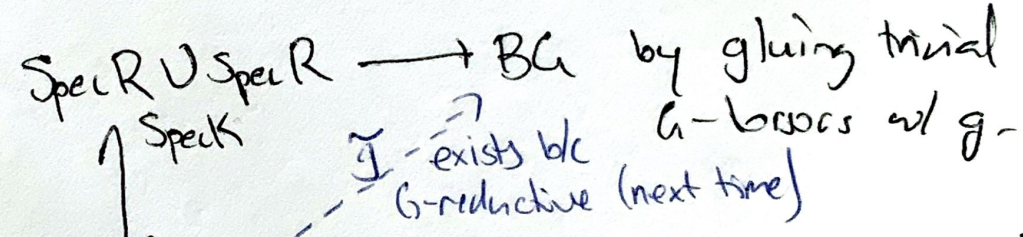 SpecR ∪ SpecR → BG by gluing trivial
SpecK G-torsors w/ g.
exists b/c
G-reductive (next time)